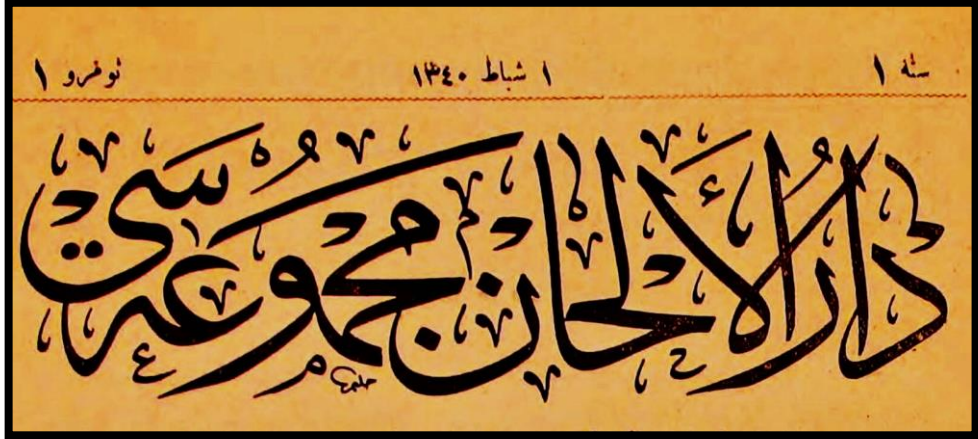 سنه ١ ١ شباط ١٣٤٠ نومرو ١
دَارُ الْأَلحان مجموعه سُی